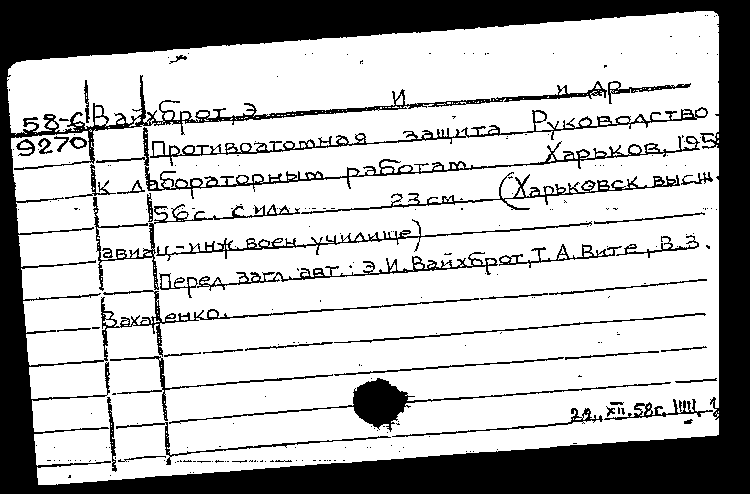 58-6 Вайхброт, Э И и др.
9270 Противоатомная защита. Руководство
к лабораторным работам. Харьков, 1958
56 с. с илл. 23 см. (Харьковск. высш.
авиац.-инж. воен. училище)
Перед загл. авт.: Э.И. Вайхброт, Т.А. Вите, В.З.
Захаренко.
22. XII. 58г.